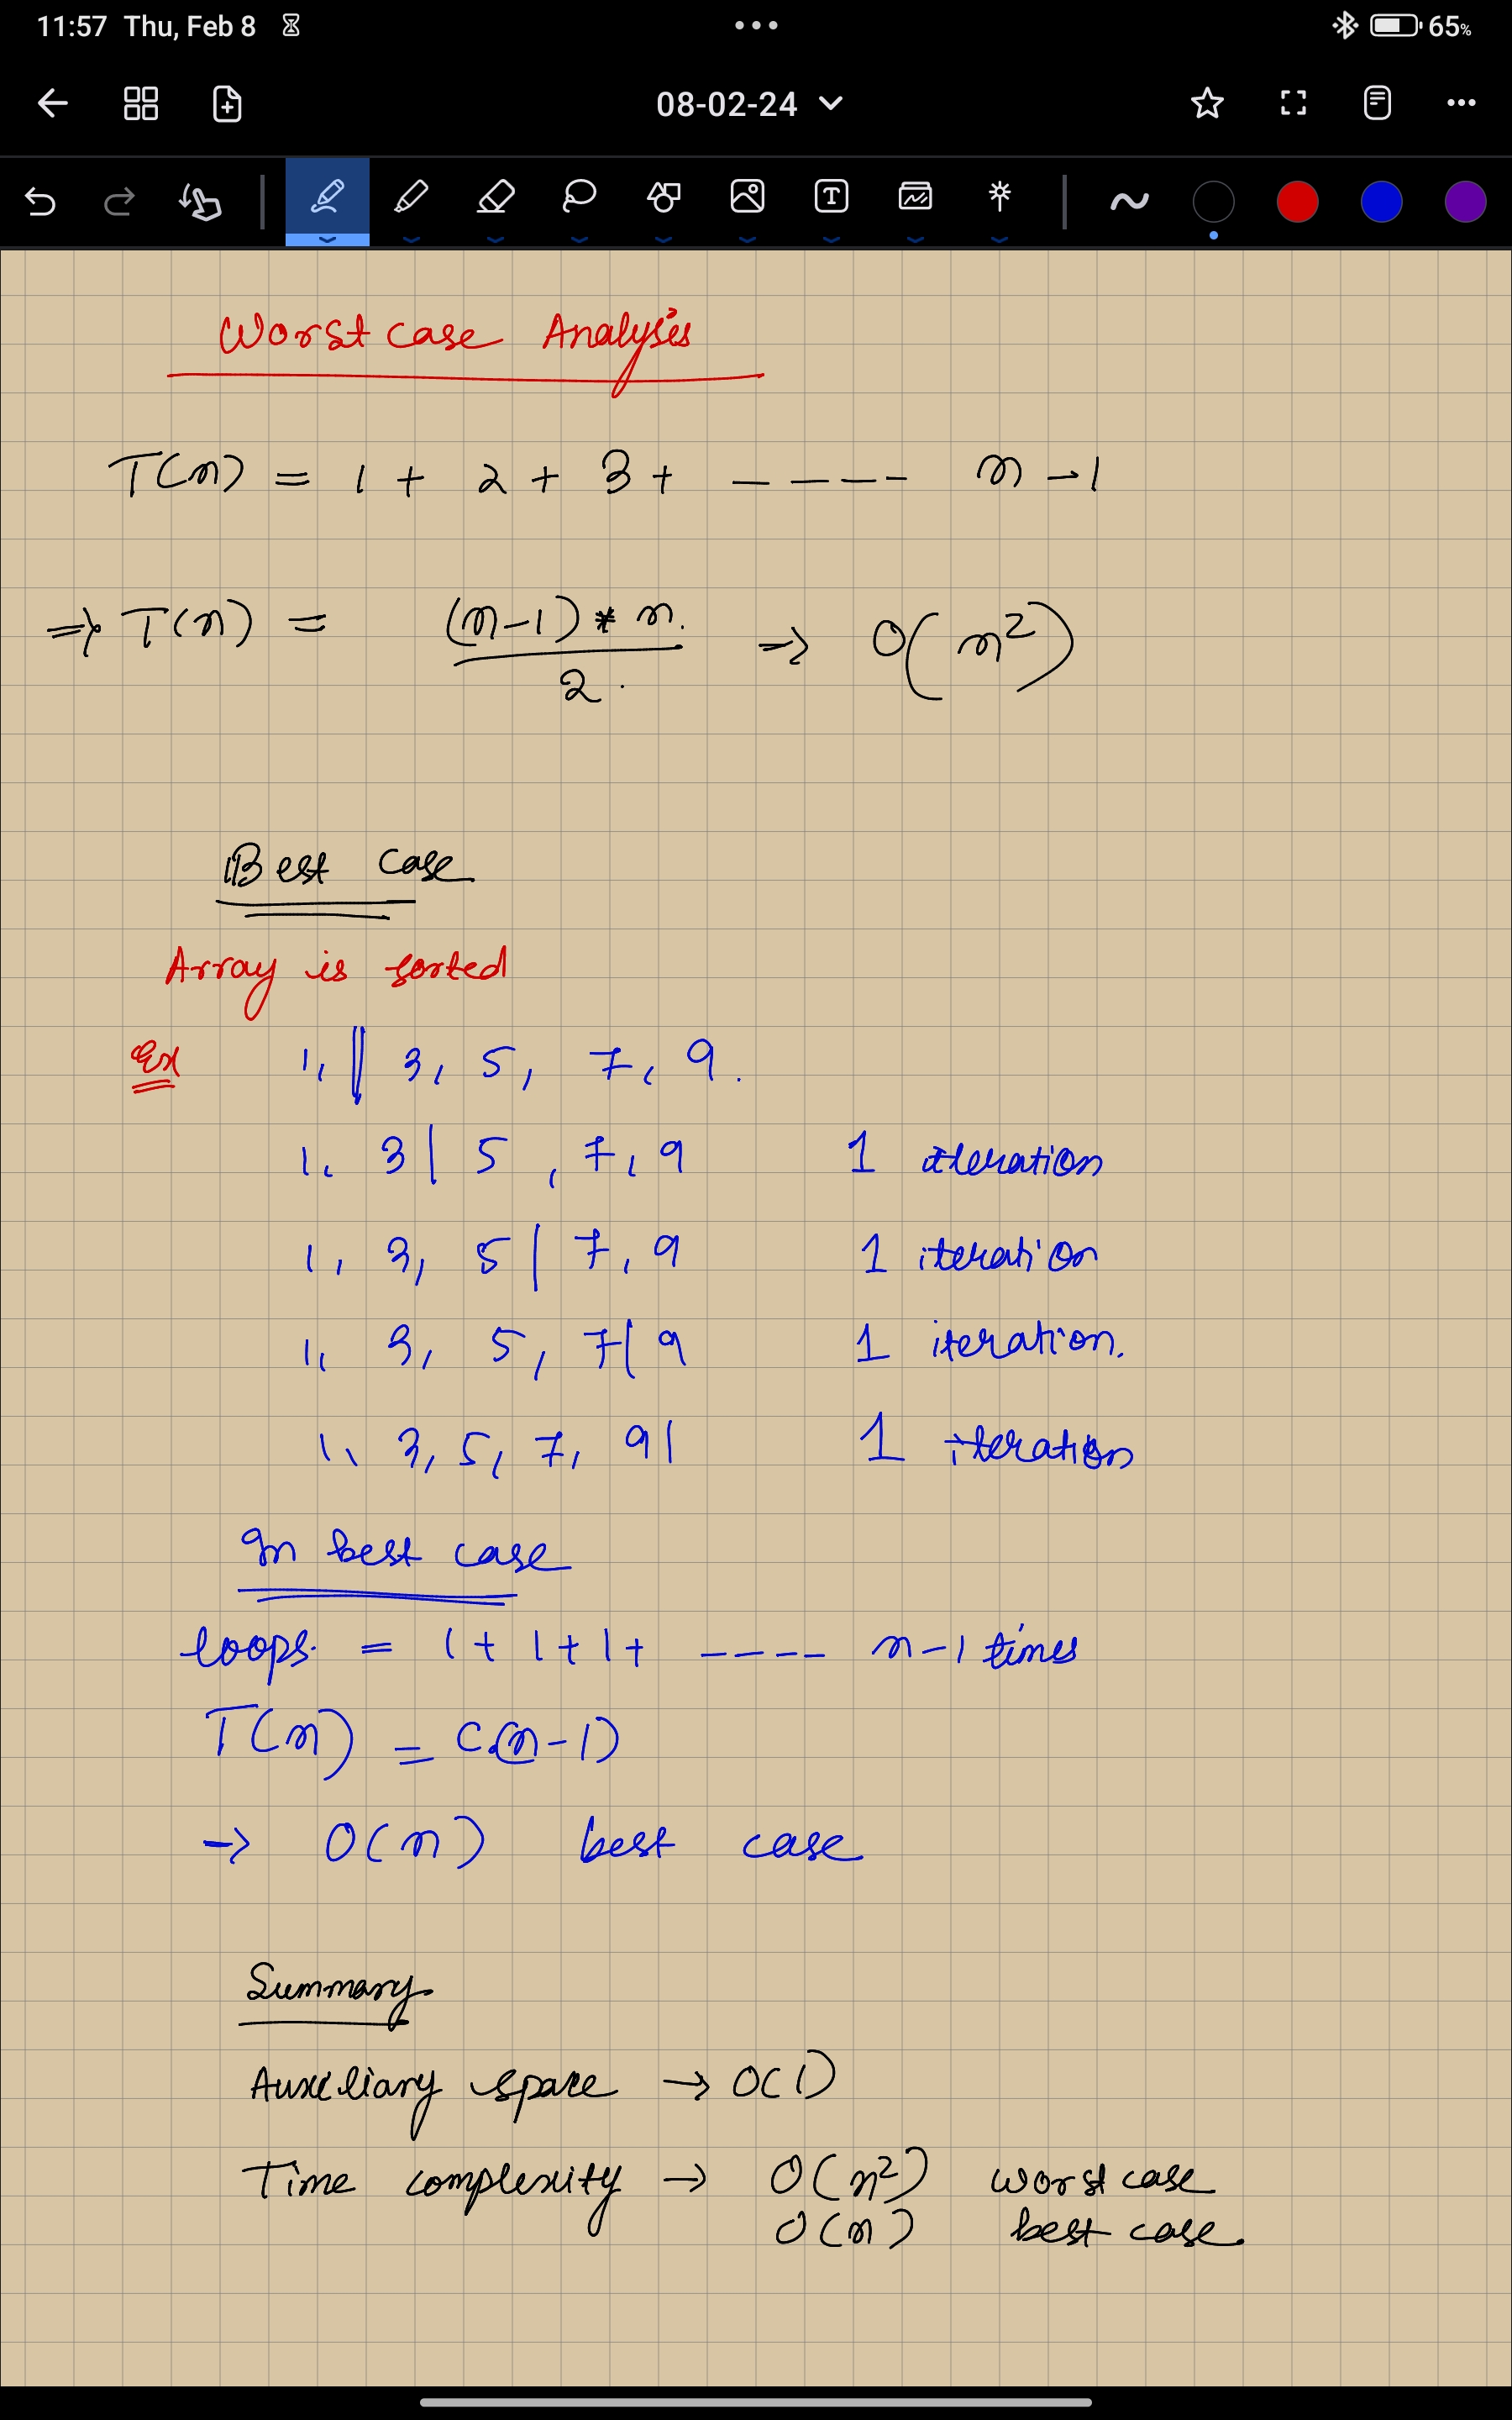 11:57 Thu, Feb 8 65%
08-02-24
Worst case Analysis
T(n) = 1 + 2 + 3 + ----- n-1
=> T(n) = (n-1) * n / 2 => O(n²)
Best case
Array is sorted
Ex 1, || 3, 5, 7, 9.
1, 3 | 5, 7, 9 1 iteration
1, 3, 5 | 7, 9 1 iteration
1, 3, 5, 7 | 9 1 iteration.
1, 3, 5, 7, 9 | 1 iteration
In best case
loops. = 1 + 1 + 1 + ---- n-1 times
T(n) = C.(n-1)
-> O(n) best case
Summary
Auxiliary space -> O(1)
Time complexity -> O(n²) worst case
O(n) best case.